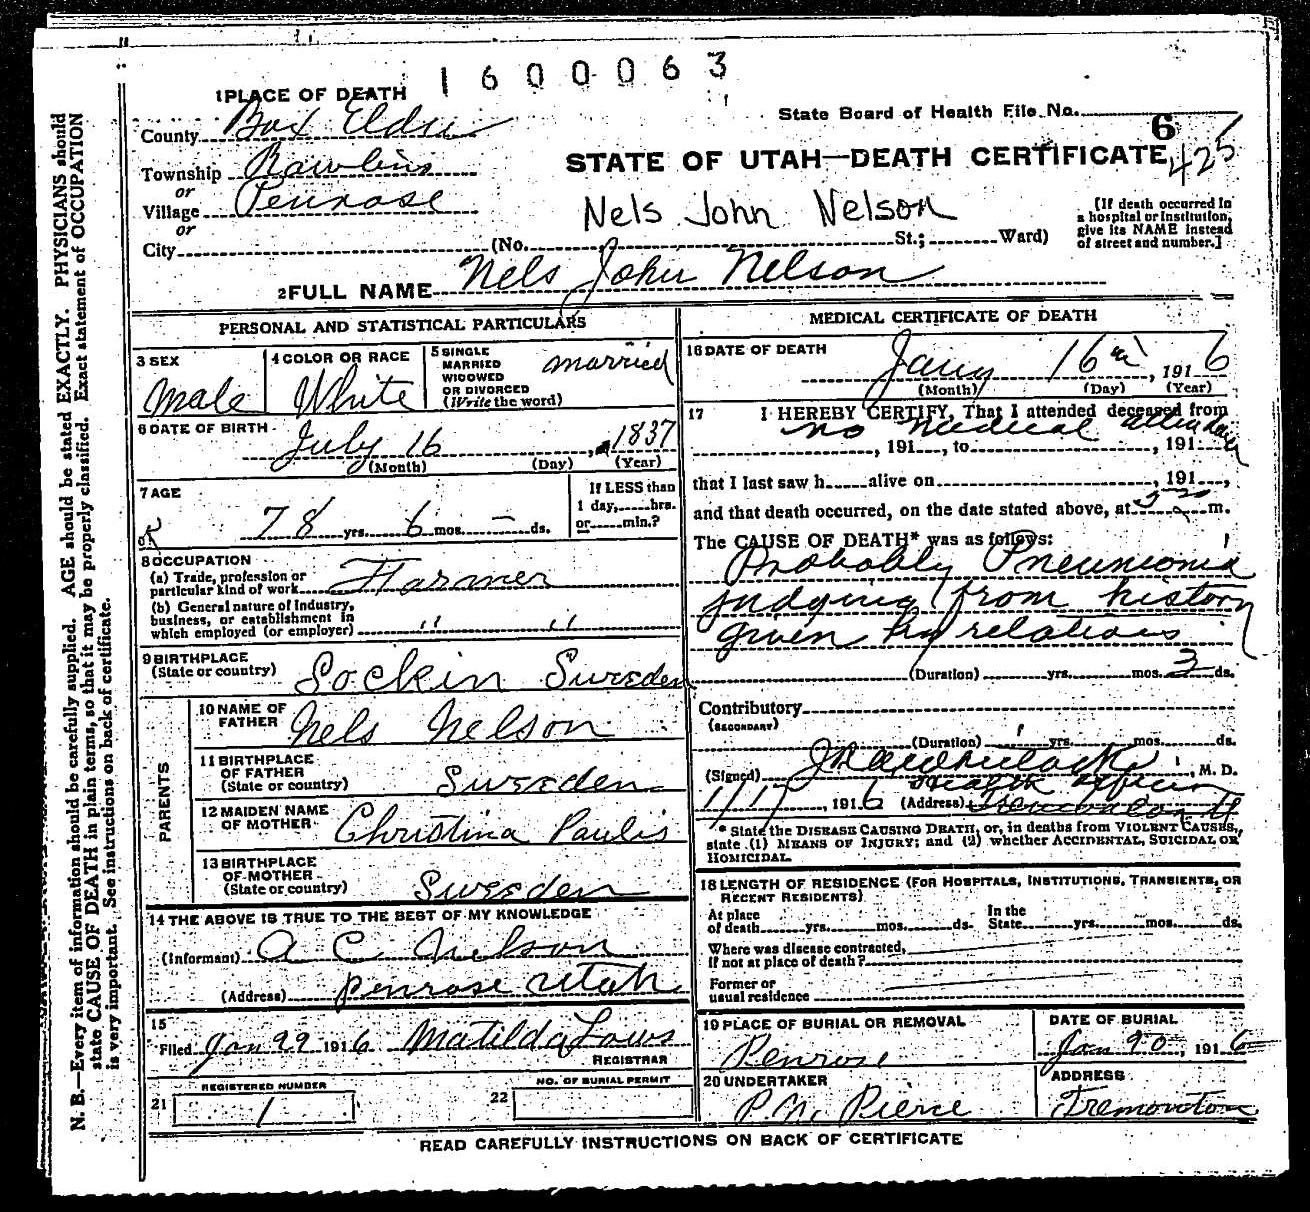 1600063
1 PLACE OF DEATH
State Board of Health File No. 6
County Box Elder
STATE OF UTAH—DEATH CERTIFICATE 425
Township Rawlins
or
Village Penrose
Nels John Nelson
[If death occurred in
a hospital or institution,
give its NAME instead
of street and number.]
or
City (No. St.; Ward)
2 FULL NAME Nels John Nelson
PERSONAL AND STATISTICAL PARTICULARS
3 SEX
Male
4 COLOR OR RACE
White
5 SINGLE
MARRIED
WIDOWED
OR DIVORCED
(Write the word)
married
6 DATE OF BIRTH
July 16, 1837
(Month) (Day) (Year)
7 AGE
78 yrs. 6 mos. – ds.
If LESS than
1 day, hrs.
or min.?
8 OCCUPATION
(a) Trade, profession or
particular kind of work Farmer
(b) General nature of Industry,
business, or establishment in
which employed (or employer) " "
9 BIRTHPLACE
(State or country) Sockin Sweden
PARENTS
10 NAME OF
FATHER Nels Nelson
11 BIRTHPLACE
OF FATHER
(State or country) Sweden
12 MAIDEN NAME
OF MOTHER Christina Paulis
13 BIRTHPLACE
OF MOTHER
(State or country) Sweden
14 THE ABOVE IS TRUE TO THE BEST OF MY KNOWLEDGE
(Informant) A C Nelson
(Address) Penrose Utah
15
Filed Jan 22 1916 Matilda Laws
REGISTRAR
REGISTERED NUMBER
21 1
NO. OF BURIAL PERMIT
22
MEDICAL CERTIFICATE OF DEATH
16 DATE OF DEATH
Jany 16th, 1916
(Month) (Day) (Year)
17 I HEREBY CERTIFY, That I attended deceased from
no medical attendance
, 191 , to , 191
that I last saw h alive on , 191 ,
and that death occurred, on the date stated above, at m.
The CAUSE OF DEATH* was as follows:
Probably Pneumonia
judging from history
given by relations
(Duration) yrs. mos. 3 ds.
Contributory
(SECONDARY)
(Duration) yrs. mos. ds.
(Signed) , M. D.
Health Officer
1/17, 1916 (Address) Tremonton U
* State the DISEASE CAUSING DEATH, or, in deaths from VIOLENT CAUSES,
state (1) MEANS OF INJURY; and (2) whether ACCIDENTAL, SUICIDAL OR
HOMICIDAL.
18 LENGTH OF RESIDENCE (FOR HOSPITALS, INSTITUTIONS, TRANSIENTS, OR
RECENT RESIDENTS)
At place
of death yrs. mos. ds.
In the
State yrs. mos. ds.
Where was disease contracted,
If not at place of death?
Former or
usual residence
19 PLACE OF BURIAL OR REMOVAL
Penrose
DATE OF BURIAL
Jan 20, 1916
20 UNDERTAKER
P. N. Pierce
ADDRESS
Tremonton
READ CAREFULLY INSTRUCTIONS ON BACK OF CERTIFICATE
N. B.—Every item of information should be carefully supplied. AGE should be stated EXACTLY. PHYSICIANS should
state CAUSE OF DEATH in plain terms, so that it may be properly classified. Exact statement of OCCUPATION
is very important. See instructions on back of certificate.